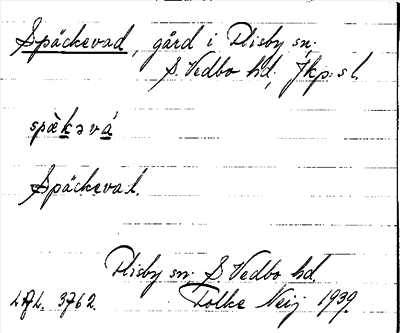 Späckevad, gård i Flisby sn,
S. Vedbo hd, Jkp:s l.
spæ̀kəvá
Späckevad.
Flisby sn. S Vedbo hd.
LAL. 3762. Folke Neij 1939.